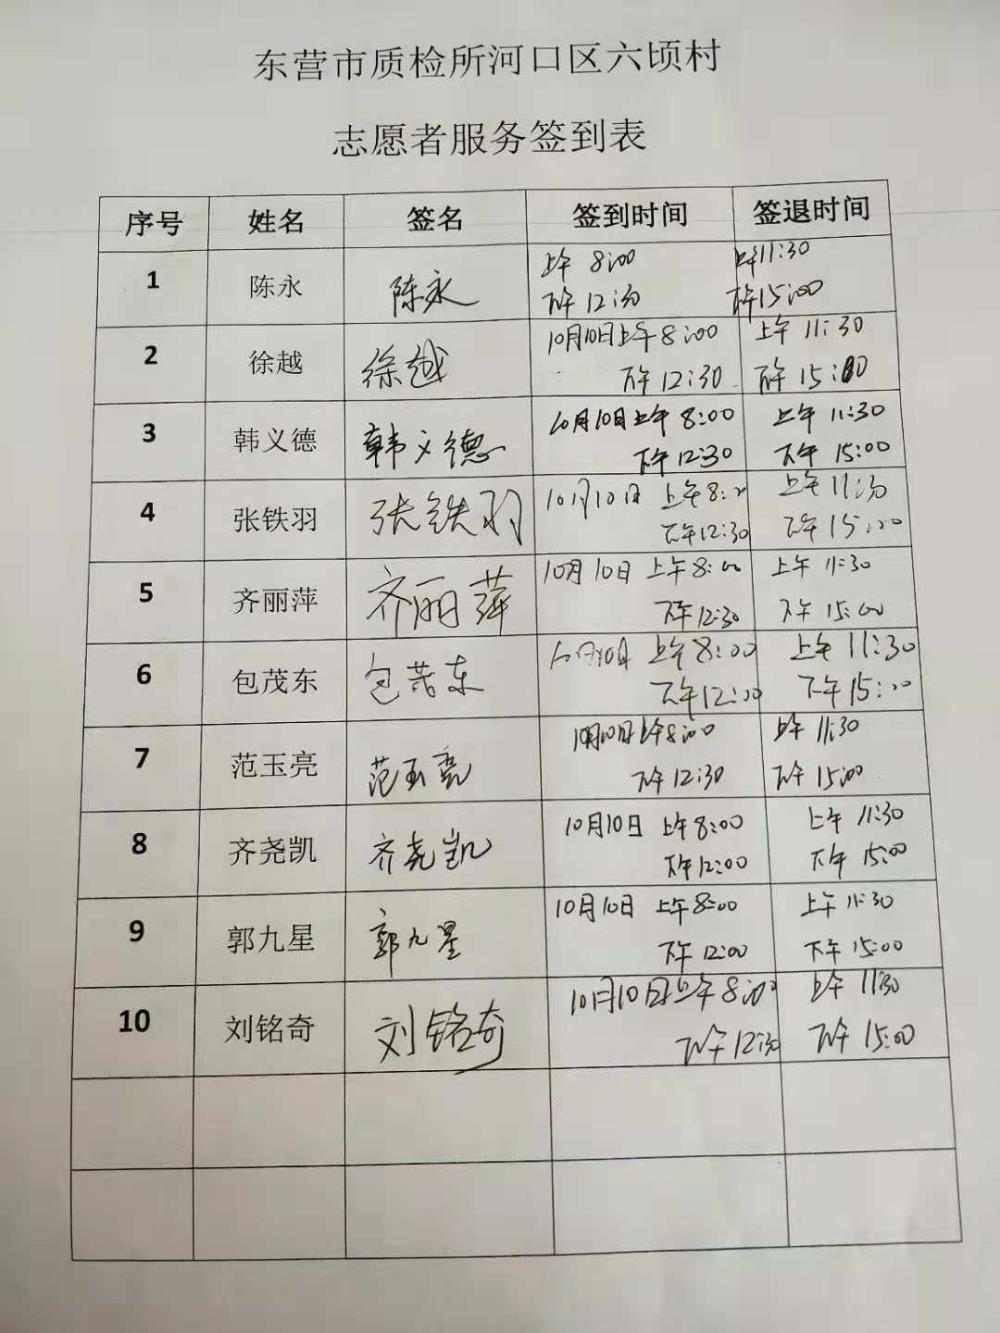 东营市质检所河口区六顷村
志愿者服务签到表
序号 姓名 签名 签到时间 签退时间
1 陈永 陈永 上午 8:00 上午11:30
下午 12:30 下午15:00
2 徐越 徐越 10月10日上午8:00 上午 11:30
下午 12:30 下午 15:00
3 韩义德 韩义德 10月10日上午 8:00 上午 11:30
下午 12:30 下午 15:00
4 张铁羽 张铁羽 10月10日 上午8: 上午 11:30
下午12:30 下午 15:00
5 齐丽萍 齐丽萍 10月10日 上午8:00 上午 11:30
下午 12:30 下午 15:00
6 包茂东 包茂东 10月10日 上午8:00 上午 11:30
下午 上午15:00
7 范玉亮 范玉亮 10月10日上午8:00 上午 11:30
下午 12:30 下午 15:00
8 齐尧凯 齐尧凯 10月10日 上午8:00 上午 11:30
下午12:00 下午 15:00
9 郭九星 郭九星 10月10日 上午8:00 上午 11:30
下午 12:00 下午 15:00
10 刘铭奇 刘铭奇 10月10日上午 8:00 上午 11:30
下午 12:30 下午 15:00